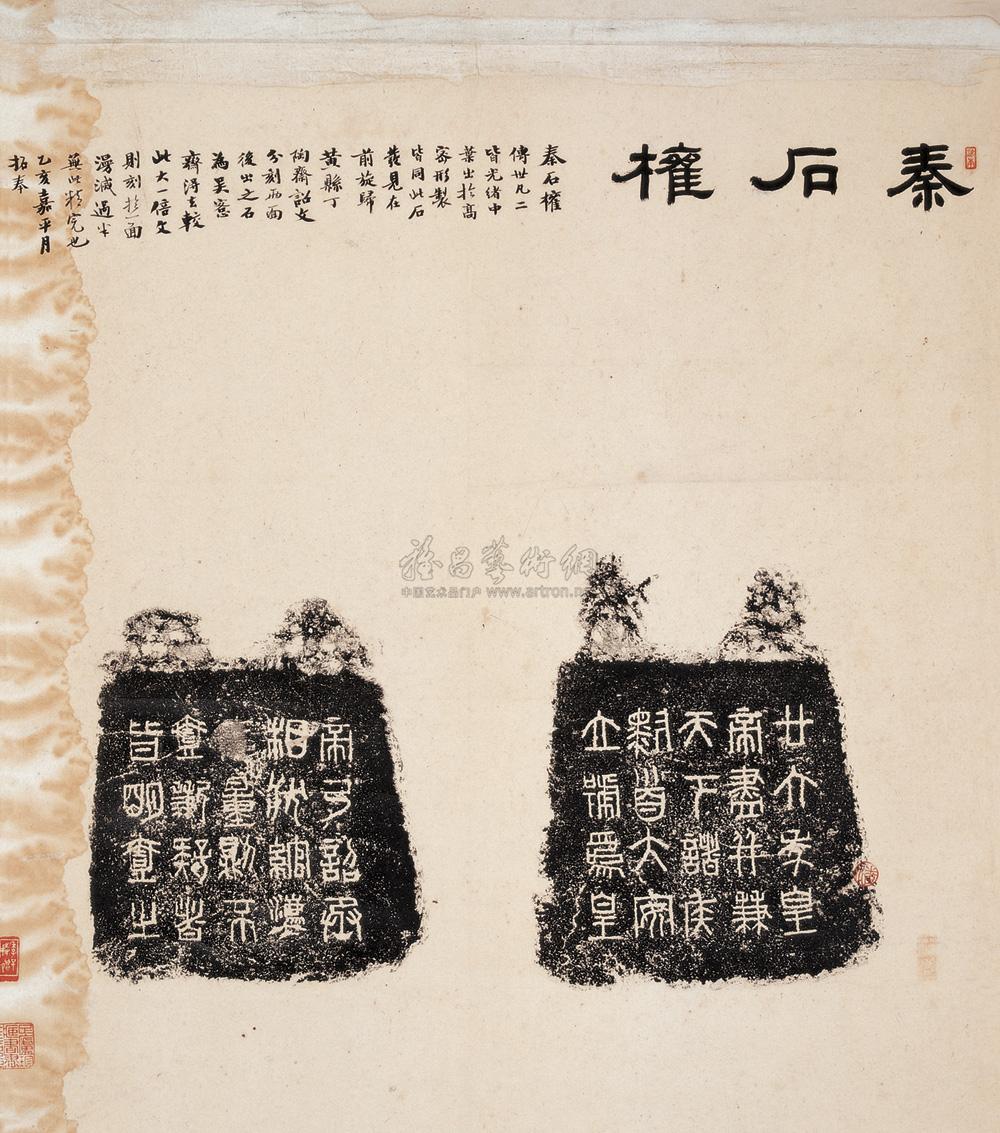 秦石權
秦石權
傳世凡二
皆光緒中
葉出於高
密形製
皆同此石
發見在
前旋歸
黃縣丁
陶齋詔文
分刻兩面
後出之石
為吴愙
齋得去較
此大一倍文
則刻於一面
漫滅過半
無此精完也
乙亥嘉平月
拓奉
廿六年皇
帝盡并兼
天下諸侯
黔首大安
立號爲皇
帝乃詔丞
相狀綰灋
度量則不
壹歉疑者
皆明壹之
雅昌藝術網
中国艺术品门户 www.artron.net